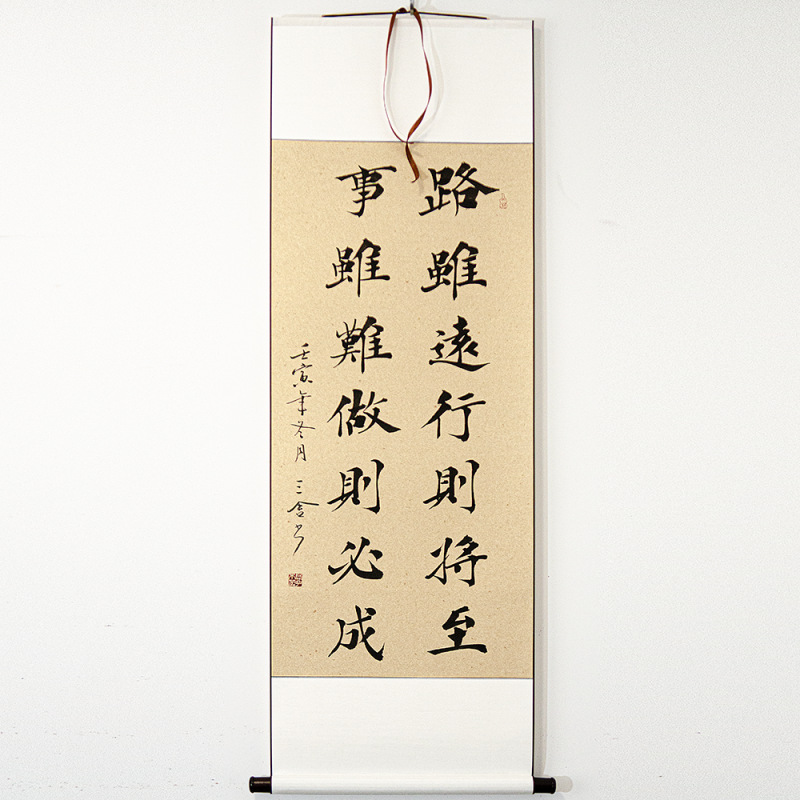 路雖遠行則將至
事雖難做則必成
壬寅年冬月三舍书